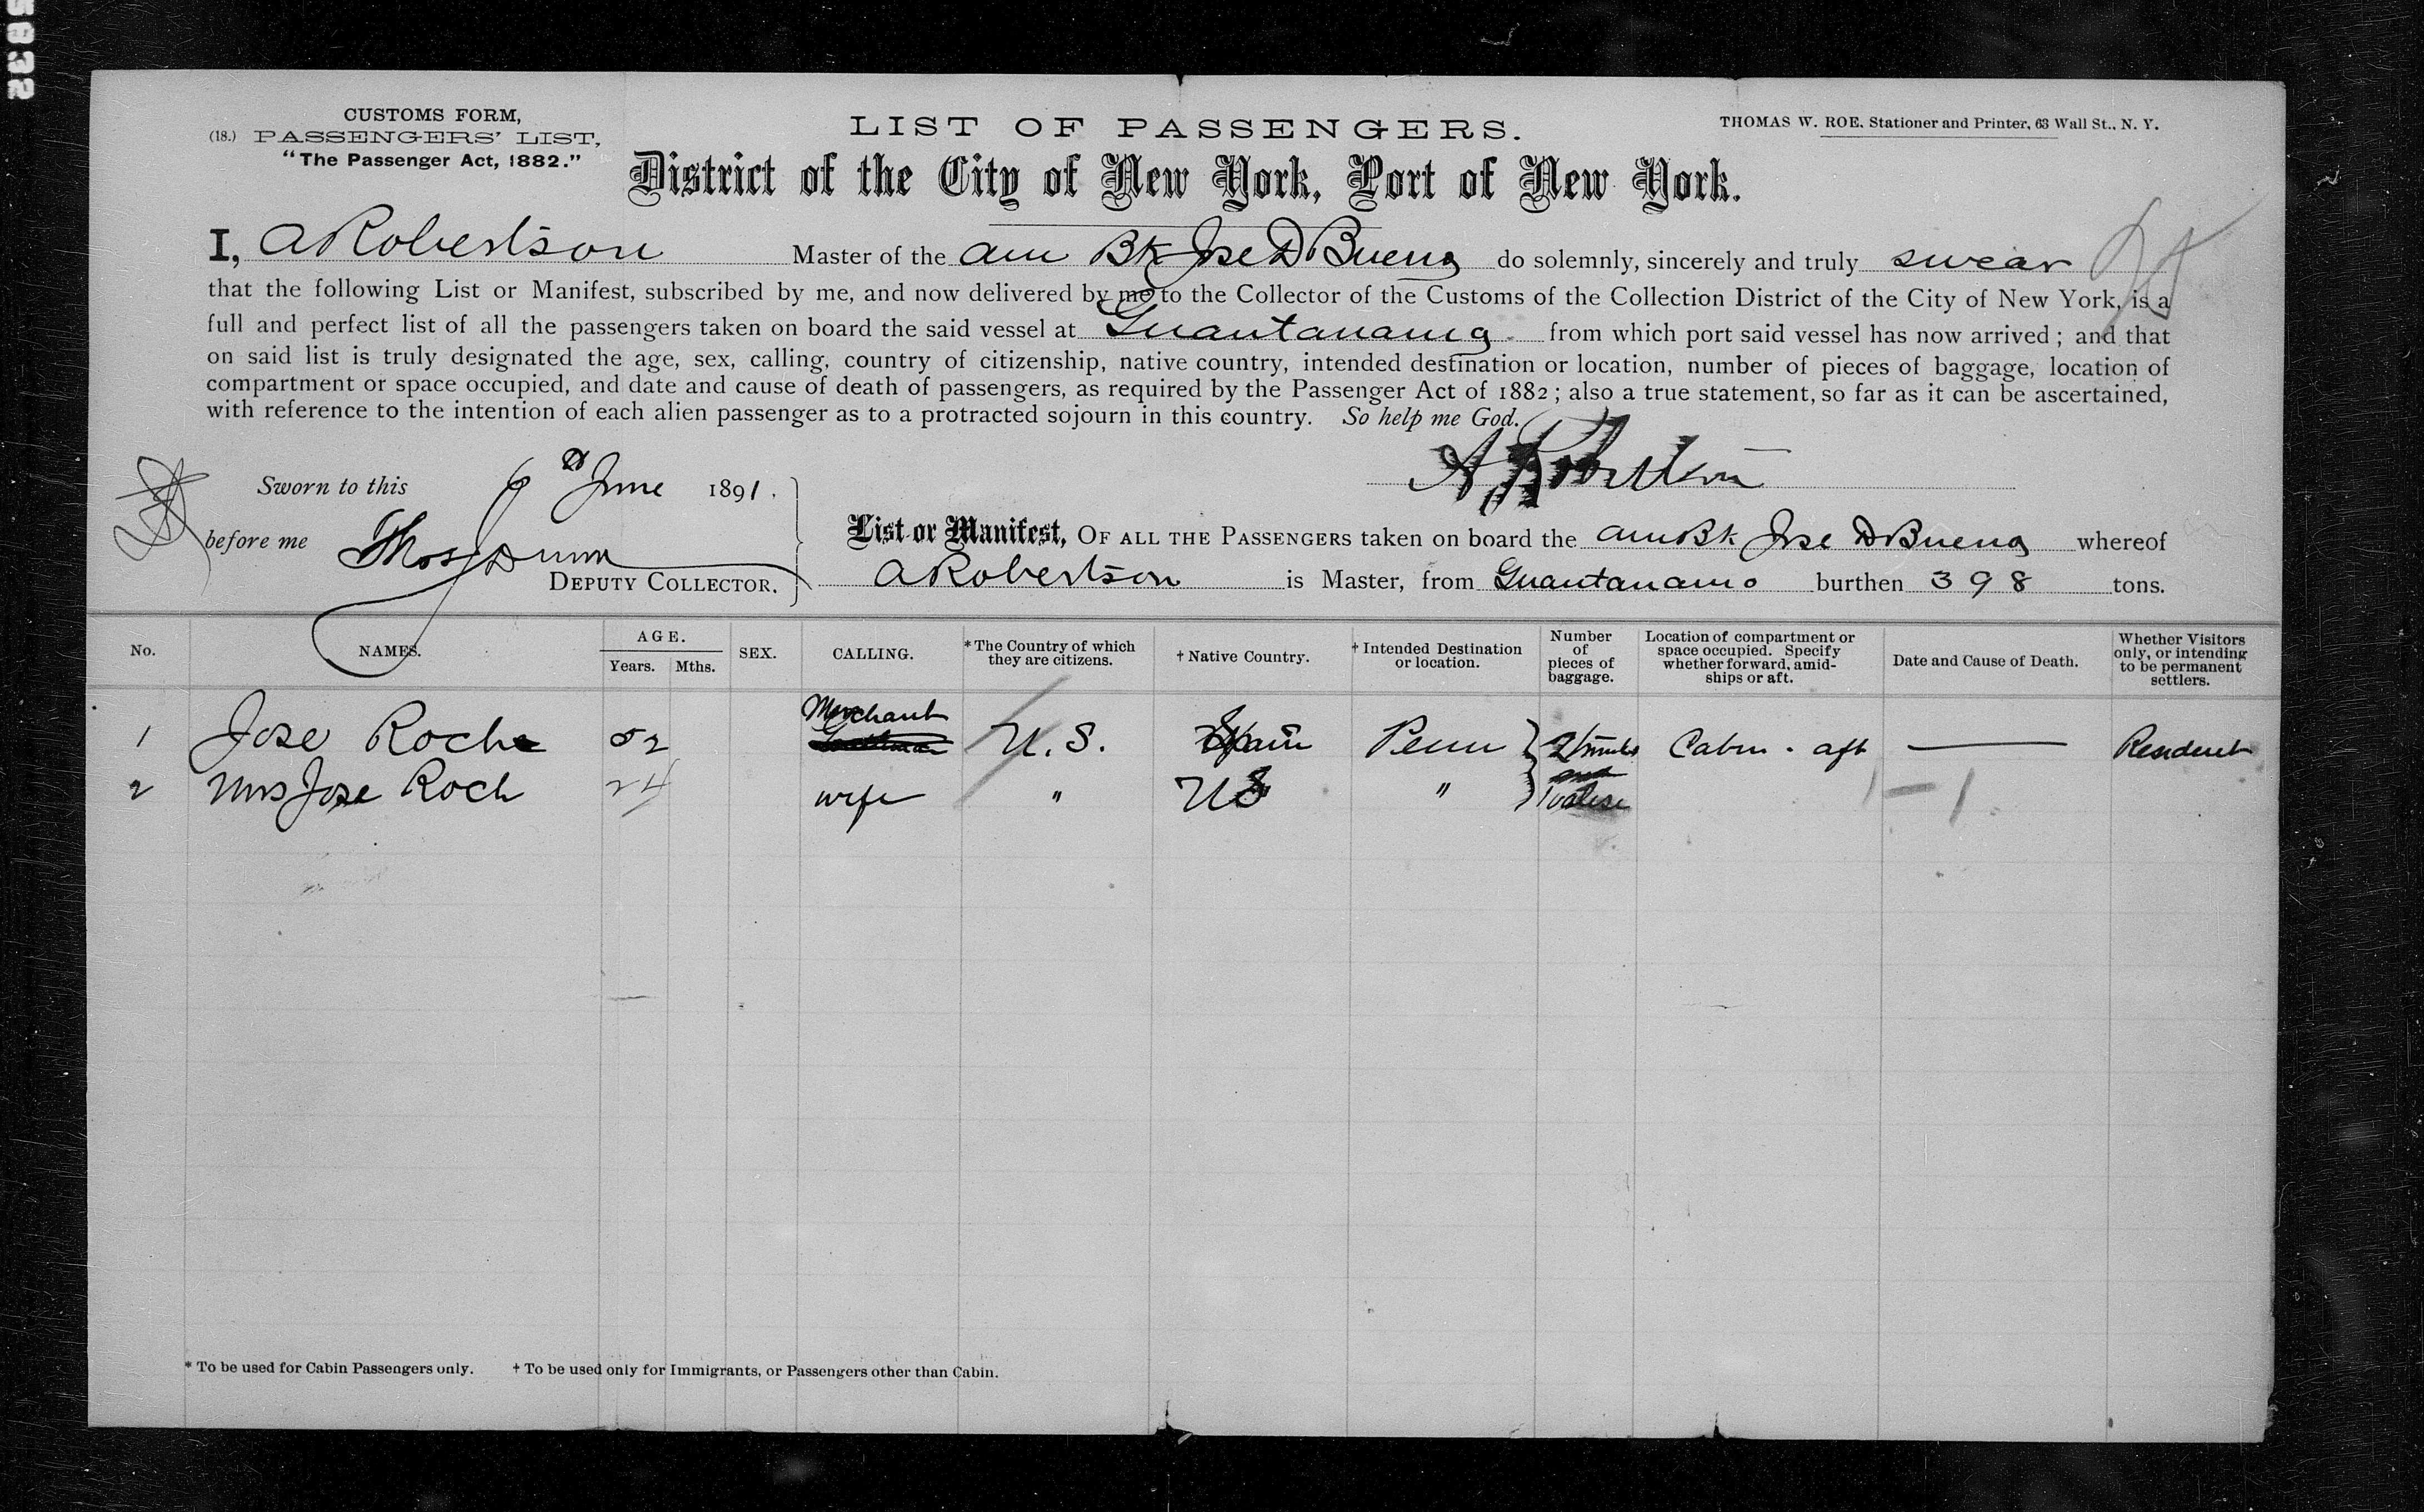 5832
CUSTOMS FORM,
(18.) PASSENGERS' LIST,
"The Passenger Act, 1882."
LIST OF PASSENGERS.
THOMAS W. ROE. Stationer and Printer, 63 Wall St., N. Y.
District of the City of New York, Port of New York.
I, A Robertson Master of the Am Bk Jose D Bueno do solemnly, sincerely and truly swear
that the following List or Manifest, subscribed by me, and now delivered by me to the Collector of the Customs of the Collection District of the City of New York, is a
full and perfect list of all the passengers taken on board the said vessel at Guantanamo from which port said vessel has now arrived; and that
on said list is truly designated the age, sex, calling, country of citizenship, native country, intended destination or location, number of pieces of baggage, location of
compartment or space occupied, and date and cause of death of passengers, as required by the Passenger Act of 1882; also a true statement, so far as it can be ascertained,
with reference to the intention of each alien passenger as to a protracted sojourn in this country. So help me God.
A Robertson
Sworn to this 6th June 1891.
before me Thos Dunn
DEPUTY COLLECTOR.
List or Manifest, OF ALL THE PASSENGERS taken on board the Am Bk Jose D Bueno whereof
A Robertson is Master, from Guantanamo burthen 398 tons.
No. NAMES. AGE. Years. Mths. SEX. CALLING. * The Country of which they are citizens. † Native Country. † Intended Destination or location. Number of pieces of baggage. Location of compartment or space occupied. Specify whether forward, amidships or aft. Date and Cause of Death. Whether Visitors only, or intending to be permanent settlers.
1 Jose Roch 52 Merchant U.S. Spain Penn 2 trunks Cabin - aft Resident
2 Mrs Jose Roch 24 wife " US " 1 valise
* To be used for Cabin Passengers only. † To be used only for Immigrants, or Passengers other than Cabin.